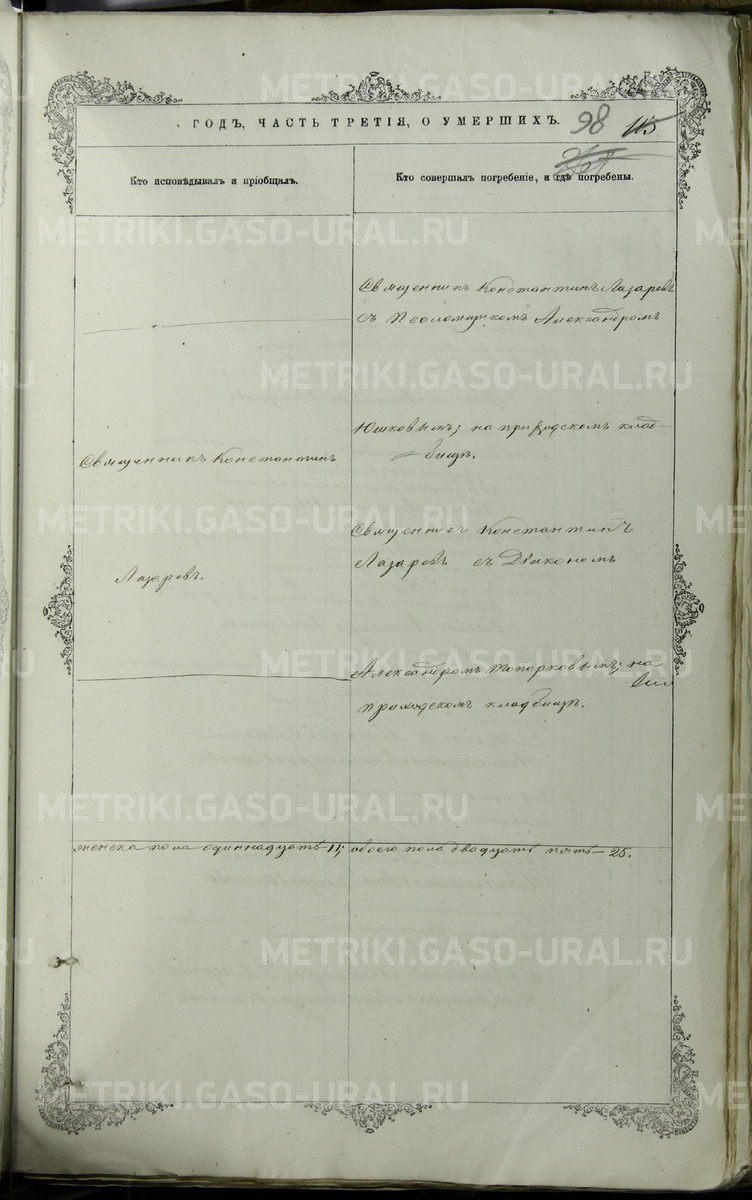 ГОДЪ, ЧАСТЬ ТРЕТІЯ, О УМЕРШИХЪ. 98 115
Кто исповѣдывалъ и пріобщалъ.
Кто совершалъ погребеніе, и гдѣ погребены.
Священникъ Константинъ Лазаревъ
съ Псаломщикомъ Александромъ
Юшковымъ; на приходскомъ клад-
бищѣ.
Священникъ Константинъ
Лазаревъ.
Священникъ Константинъ
Лазаревъ съ Діякономъ
Александромъ Топорковымъ; на
приходскомъ кладбищѣ.
женска пола одиннадцать-11; обоего пола двадцать пять-25.
METRIKI.GASO-URAL.RU